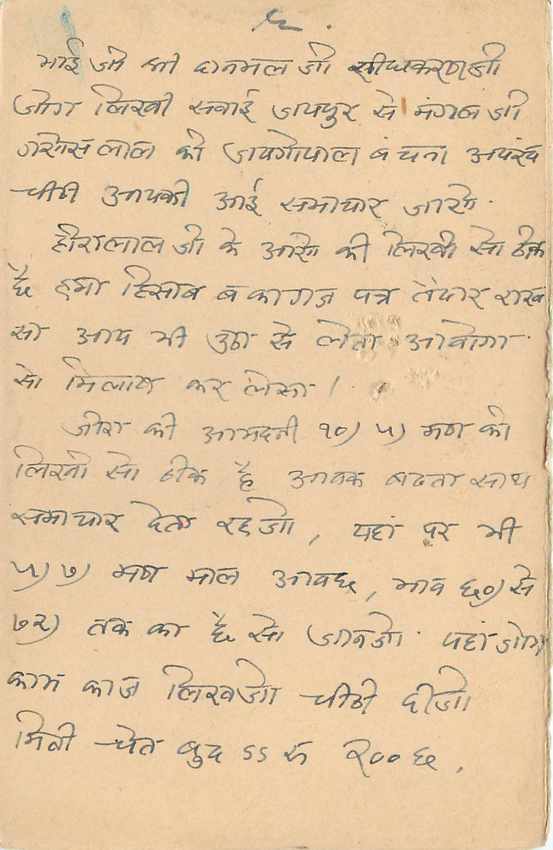 भाई जी श्री दानमल जी सीधकरणजी
जोग लिखी सवाई जयपुर से मंगल जी
गणेस लाल को जयगोपाल बंचना अपरंच
चीठी आपकी आई समाचार जाणे.
हीरालाल जी के आणे की लिखी सो ठीक
है हमा हिसाब व कागज पत्र तैयार राख
सो आप भी उठा से लेता आवोगा.
सो मिलाण कर लेसा।
जीरा की आमदनी १०) ५) मण की
लिखी सो ठीक है आवक बढता साथ
समाचार देता रहजो, यहां पर भी
५) ७) मण माल आवछ, भाव ६०) से
७२) तक का है सो जानजो. यहां जोग
काम काज लिखजो चीठी दीजो
मिती चेत बुद ऽऽ २००६.